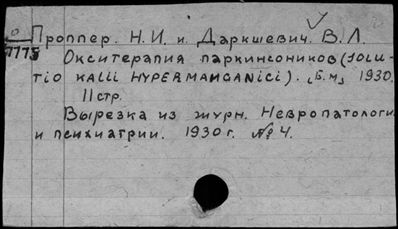 О
7775
Проппер. Н. И. и. Даркшевич. В. Л.
Окситерапия паркинсоников (Solu-
tio Kalii HYPERMANGANici). [Б.м] 1930.
11 стр.
Вырезка из журн. Невропатологи
и психиатрии. 1930 г. № 4.